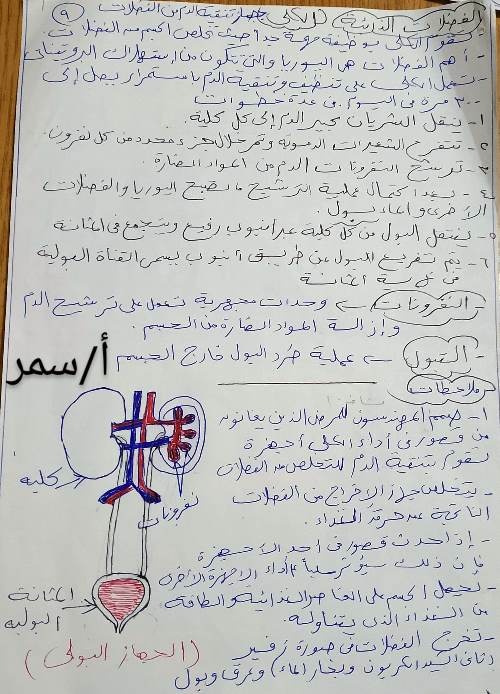 ٩
الفضلات الذائبة (الكلى) تنقية الدم من الفضلات
تقوم الكلى بوظيفة مهمة جدا حيث تخلص الجسم من الفضلات
- أهم الفضلات هى اليوريا والتى تتكون من استهلاك البروتينات
- تعمل الكلى على تنظيف وتنقية الدم باستمرار يصل إلى
٣٠٠ مرة فى اليوم. فى عدة خطوات
١- ينقل الشريان الدم إلى كل كلية.
٢- تتفرع الشعيرات الدموية وتمر خلال جزء محدد من كل نفرون.
٣- ترشح النفرونات الدم من المواد الضارة.
٤- بعد اكتمال عملية الترشيح تصبح اليوريا والفضلات
الأخرى والماء بول.
٥- ينتقل البول من كل كلية عبر انبوب رفيع ويتجمع فى المثانة
٦- يتم تفريغ البول عن طريق أنبوب يسمى القناة البولية
فى المثانة
- النفرونات ← وحدات مجهرية تعمل على ترشيح الدم
وإزالة المواد الضارة من الجسم.
- التبول ← عملية طرد البول خارج الجسم
أ/سمر
ملاحظات
١- صمم المهندسون للمرضى الذين يعانون
من قصور فى أداء الكلى أجهزة
تقوم بتنقية الدم للتخلص من الفضلات
- يتخلص جهاز الإخراج من الفضلات
الناتجة عن حرق الغذاء.
- إذا حدث قصور فى احد الأجهزة
فإن ذلك سيؤثر سلبا أداء الأجهزة الأخرى
- يحصل الجسم على العناصر الغذائية والطاقة
من الغذاء الذى يتناوله.
- تخرج الفضلات فى صورة زفير
(ثانى أكسيد الكربون وبخار الماء) وعرق وبول
كلية
نفرونات
المثانة
البولية
(الجهاز البولى)